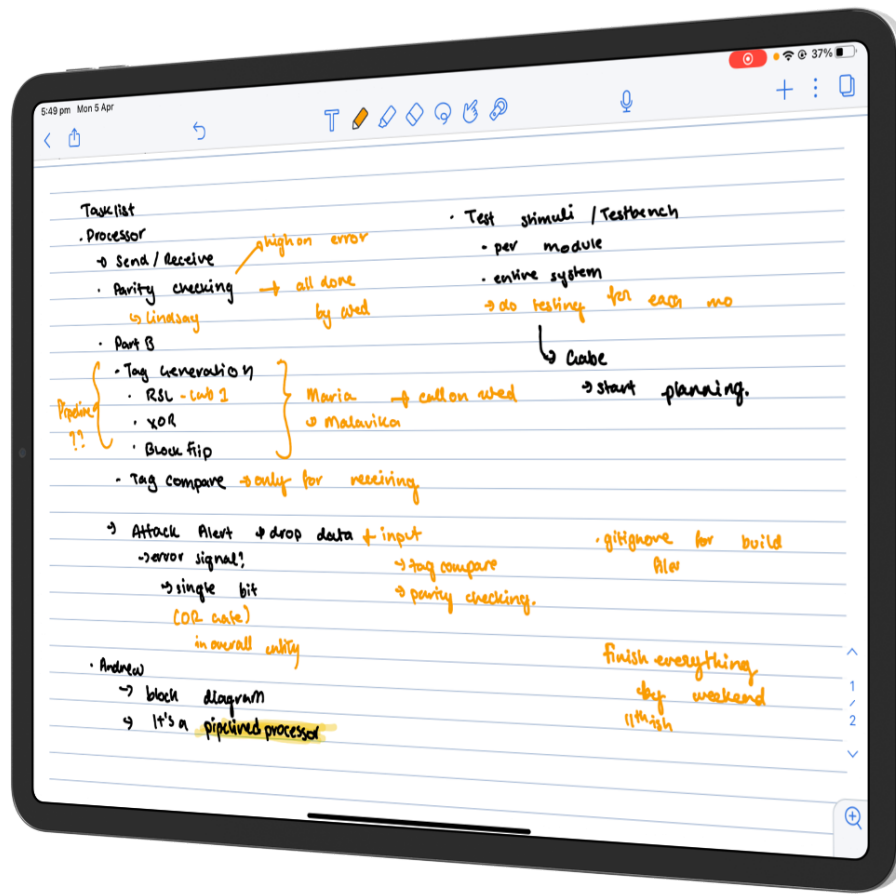 5:49 pm Mon 5 Apr
37%
Tasklist
· Processor
→ Send / Receive
→ high on error
· Parity checking → all done
by wed
↳ Lindsay
· Part B
· Tag Generation
· RSL - Lab 1
· XOR
· Block flip
Pipeline
??
Maria → call on wed
↳ Malavika
· Tag compare → only for receiving
→ Attack Alert → drop data + input
→ tag compare
→ parity checking.
→ error signal?
→ single bit
(OR gate)
in overall entity
· Andrew
→ block diagram
→ It's a pipelined processor
· Test stimuli / Testbench
· per module
· entire system
→ do testing for each mo
↳ Gabe
→ start planning.
· gitignore for build
files
finish everything
by weekend
11th ish
1
/
2